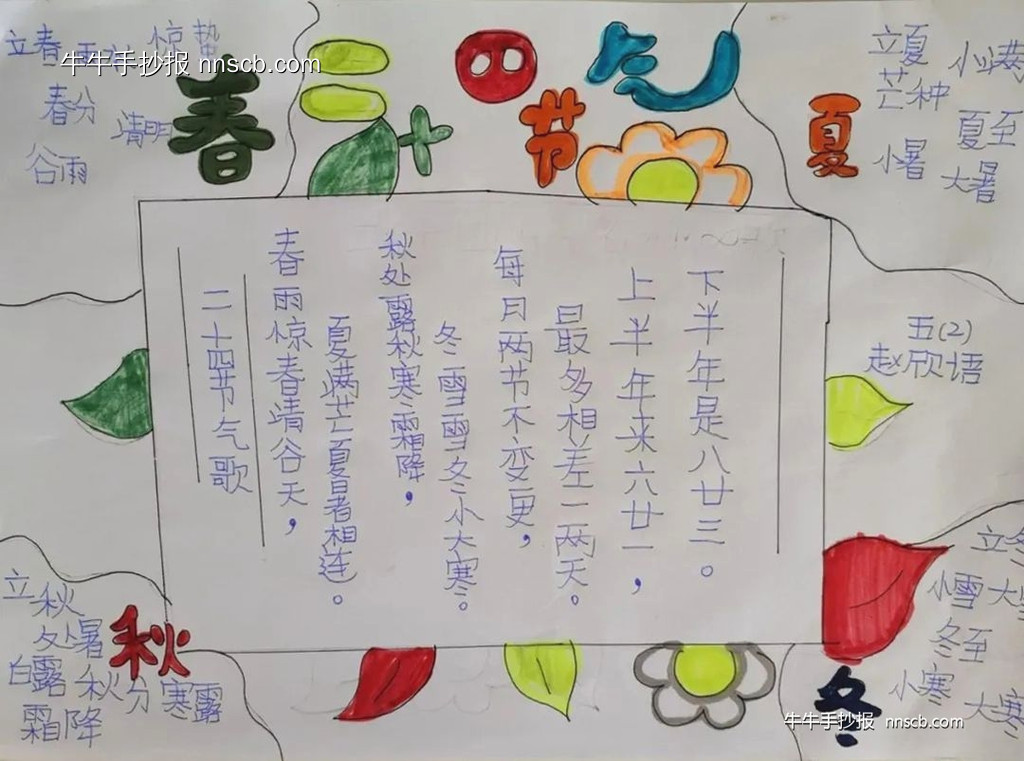 二十四节气
春
立春 雨水 惊蛰
春分 清明
谷雨
牛牛手抄报 nnscb.com
夏
立夏 小满
芒种 夏至
小暑 大暑
二十四节气歌
春雨惊春靖谷天，
夏满芒夏暑相连。
秋处露秋寒霜降，
冬雪雪冬小大寒。
每月两节不变更，
最多相差一两天。
上半年来六廿一，
下半年是八廿三。
五(2)
赵欣语
秋
立秋
处暑
白露 秋分 寒露
霜降
冬
立冬
小雪 大雪
冬至
小寒 大寒
牛牛手抄报 nnscb.com